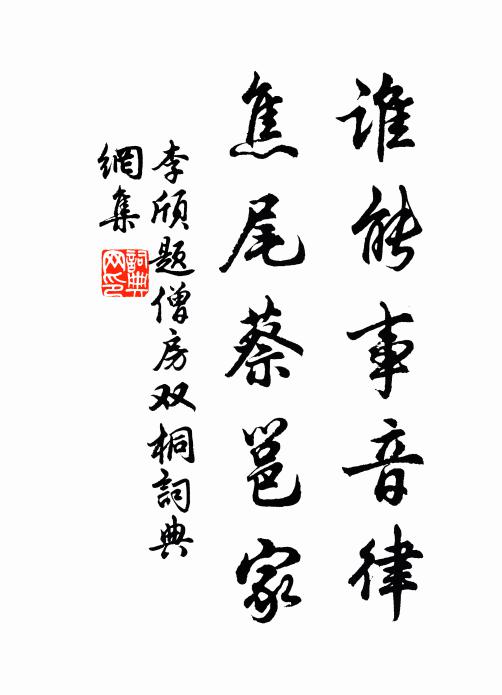 谁能事音律
焦尾蔡邕家
李颀题僧房双桐詞典
網集
詞典
网印